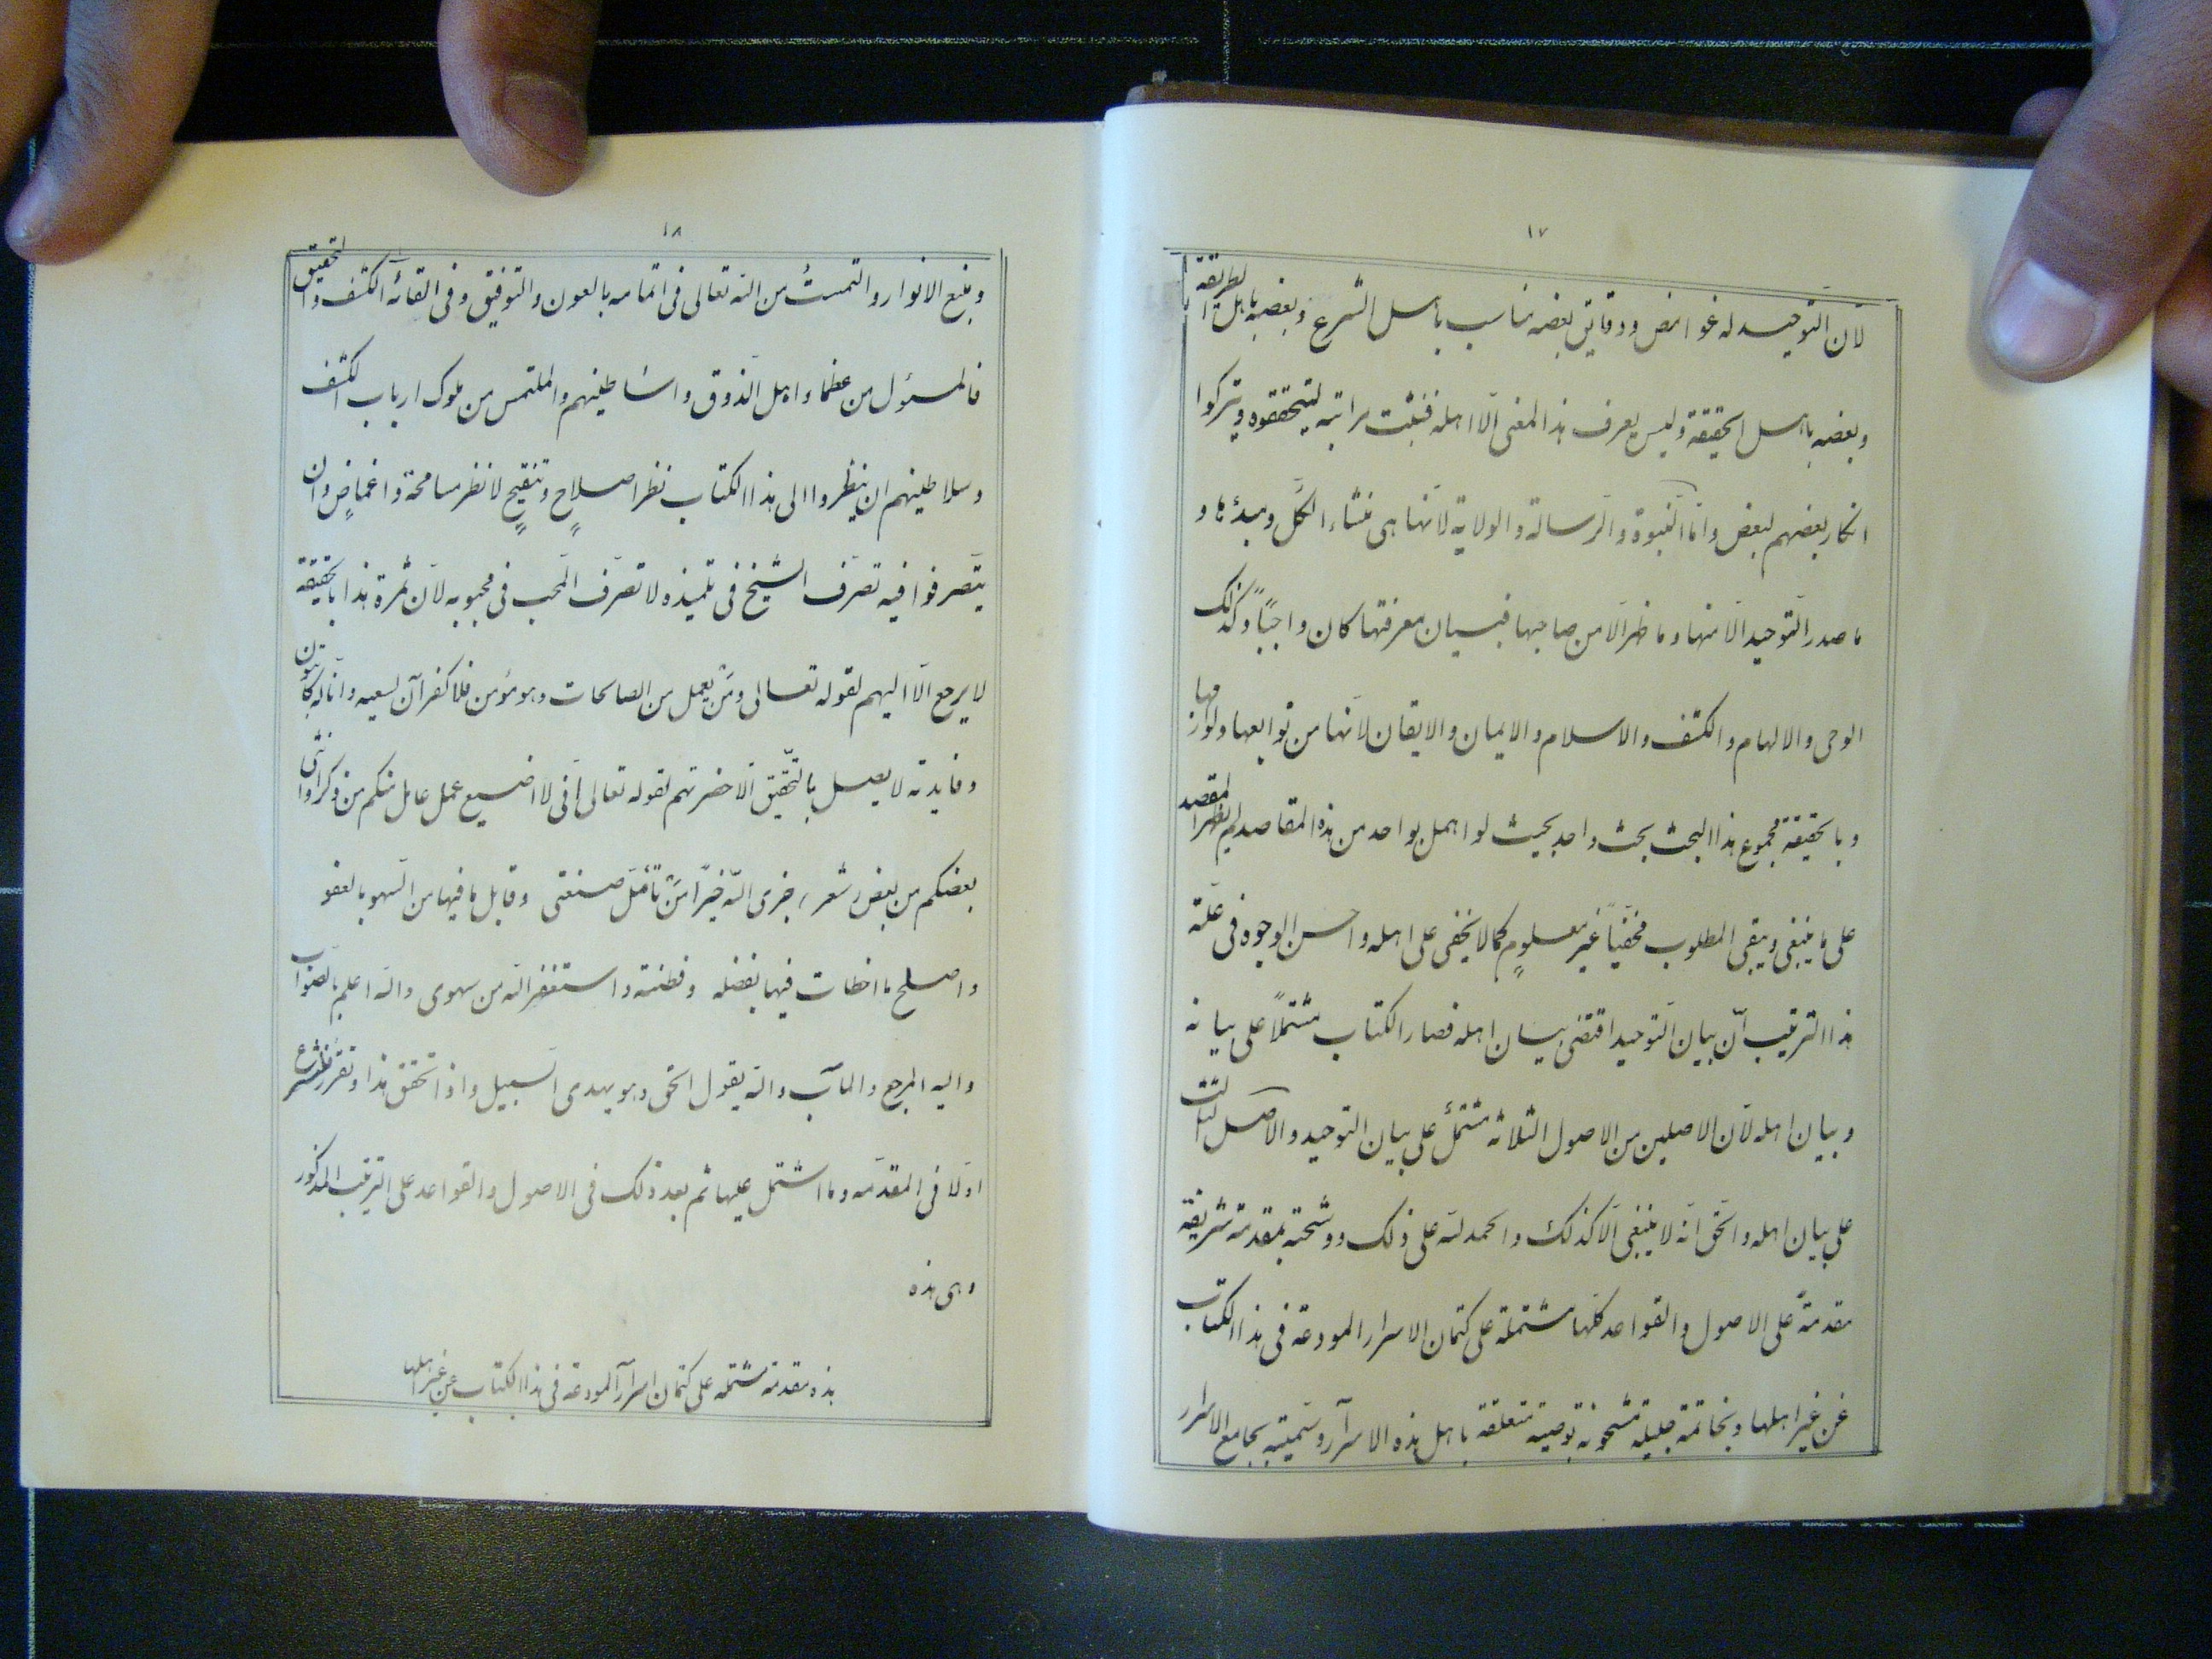 ١٧
لانّ التوحيد له غوامض ودقايق بعضه مناسب باهل الشرع وبعضه باهل الطريقة
وبعضه باهل الحقيقة وليس يعرف هذا المعنى الّا اهله فبيّنت مراتبه ليتحققوه ويتركوا
انكار بعضهم لبعض وامّا النبوة والرسالة والولاية لانّها هى منشاء الكل ومبدؤها و
ما صدر التوحيد الّا منها وما ظهر الّا من صاحبها فبيان معرفتها كان واجبًا وكذلك
الوحى والالهام والكشف والاسلام والايمان والايقان لانّها من توابعها ولوازمها
وبالحقيقة مجموع هذا البحث بحث واحد بحيث لو اهمل بواحد من هذه المقاصد لم يظهر المقصد
على ما ينبغى ويبقى المطلوب مخفيّاً غير معلومٍ كما لا يخفى على اهله واحسن الوجوه فى علّة
هذا الترتيب انّ بيان التوحيد اقتضى بيان اهله فصار الكتاب مشتملًا على بيانه
وبيان اهله لانّ الاصلين من الاصول الثلاثه مشتملٌ على بيان التوحيد والاصل الثالث
على بيان اهله والحقّ انّه لا ينبغى الّا كذلك والحمد لله على ذلك ووشحته بمقدمة شريفة
مقدمةً على الاصول والقواعد كلّها مشتملة على كتمان الاسرار المودعة فى هذا الكتاب
عن غير اهلها وبخاتمة جليلة مشحونة بوصية متعلقة باهل هذه الاسرار وسمّيته بجامع الاسرار
١٨
ومنبع الانوار والتمستُ من الله تعالى فى اتمامه بالعون والتوفيق وفى القائه الكشف والتحقيق
فالمسؤل من عظماء اهل الذوق واساطينهم والملتمس من ملوك ارباب الكشف
وسلاطينهم ان ينظروا الى هذا الكتاب نظر اصلاحٍ وتنقيحٍ لا نظر مسامحة واغماضٍ وان
يتصرفوا فيه تصرّف الشيخ فى تلميذه لا تصرّف المحب فى محبوبه لانّ ثمرة هذا بالحقيقة
لا يرجع الّا اليهم لقوله تعالى ومَن يعمل من الصالحات وهو مؤمن فلا كفران لسعيه وانّا له كاتبون
وفايدته لا يصل بالتحقيق الّا حضرتهم لقوله تعالى إنّى لا اضيع عمل عامل منكم من ذكر او انثى
بعضكم من بعض شعر جزى الله خيرًا مَن تأمّل صنعتى وقابل ما فيها من السهو بالعفو
واصلح ما اخطات فيها بفضله وفطنته واستغفر الله من سهوى والله اعلم بالصواب
واليه المرجع والمآب والله يقول الحق وهو يهدى السبيل واذا تحقق هذا وتقرّر فلنشرع
اولًا فى المقدّمه وما اشتمل عليها ثم بعد ذلك فى الاصول والقواعد على الترتيب المذكور
وهى هذه
هذه مقدمة مشتملة على كتمان اسرار المودعة فى هذا الكتاب عن غير اهلها